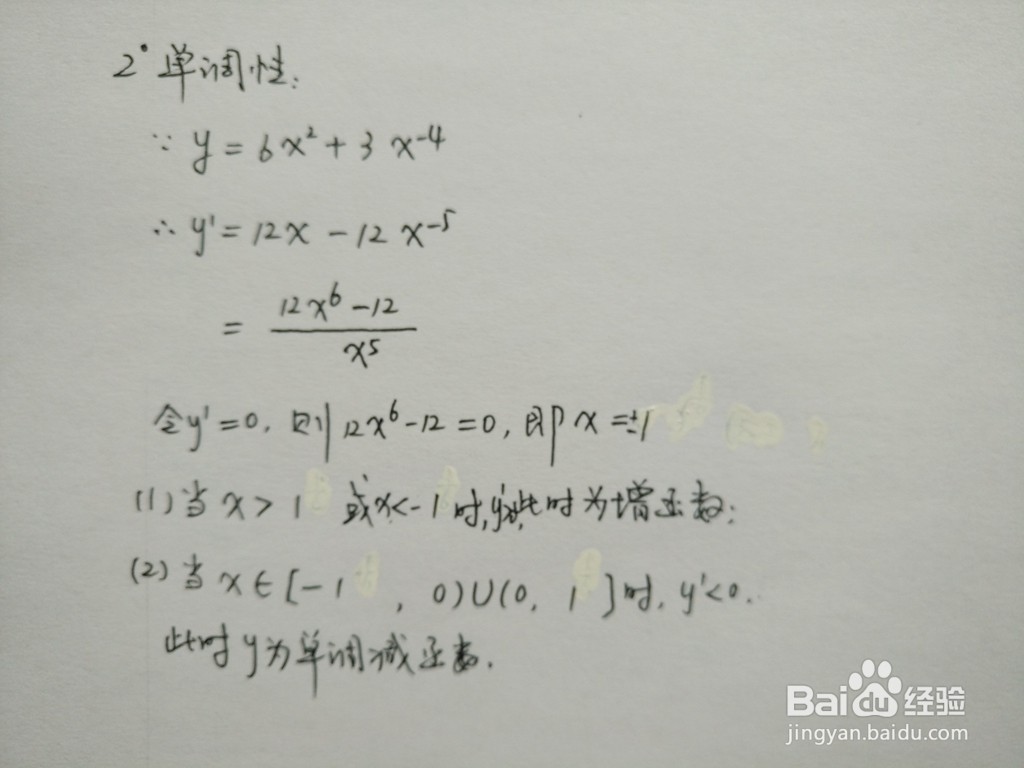 2° 单调性:
∵ y = 6x² + 3x⁻⁴
∴ y' = 12x - 12x⁻⁵
= (12x⁶ - 12) / x⁵
令y'=0, 则12x⁶-12=0, 即x=±1
(1) 当 x > 1 或x<-1时, 此时为增函数;
(2) 当 x∈[-1, 0)∪(0, 1]时, y'<0.
此时y为单调减函数.
Bai du 经验
jingyan.baidu.com